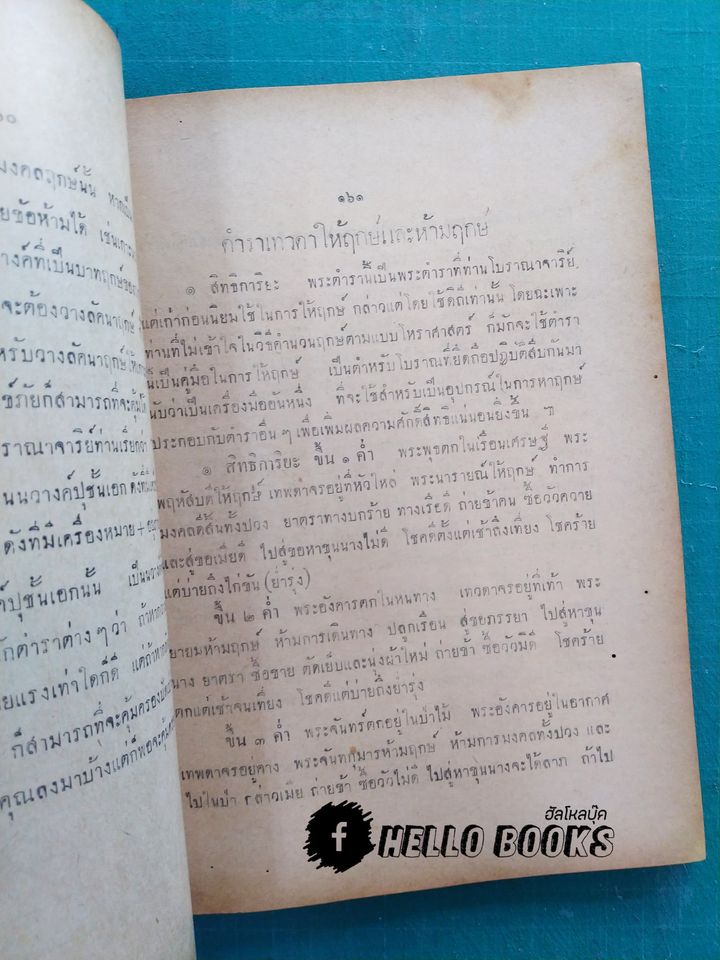 ๖๐
มงคลฤกษ์นั้น
ยข้อห้ามได้ เช่นเกาะ
างค์ที่เป็นบาทฤกษ์ของ
จะต้องวางลัคนาฤกษ์
หรับวางลัคนาฤกษ์ให้
ข์ภัยก็สามารถที่จะคุ้ม
ราณาจารย์ท่านเรียก
นนวางค์ปุชั้นเอก ดังที่
ดังที่มีเครื่องหมาย +
ค์ปุชั้นเอกนั้น เป็น
ักตำราต่างๆว่า ถ้าหาก
ยแรงเท่าใดก็ดี แต่ถ้าหาก
ก็สามารถที่จะคุ้มครอง
คุณลงมาบ้างแต่ก็พอจะ
๑๖๑
ตำราเทวดาให้ฤกษ์และห้ามฤกษ์
๑ สิทธิการิยะ พระตำรานี้เป็นพระตำราที่ท่านโบราณาจารย์
แต่เก่าก่อนนิยมใช้ในการให้ฤกษ์ กล่าวแต่โดยใช้ดิถีเท่านั้น โดยฉะเพาะ
ท่านที่ไม่เข้าใจในวิธีคำนวนฤกษ์ตามแบบโหราศาสตร์ ก็มักจะใช้ตำรา
นี้เป็นคู่มือในการให้ฤกษ์ เป็นตำหรับโบราณที่ยึดถือปฏิบัติสืบกันมา
นับว่าเป็นเครื่องมืออันหนึ่ง ที่จะใช้สำหรับเป็นอุปกรณ์ในการหาฤกษ์
ประกอบกับตำราอื่น ๆ เพื่อเพิ่มผลความศักดิ์สิทธิ์แน่นอนยิ่งขึ้น ฯ
๑ สิทธิการิยะ ขึ้น ๑ ค่ำ พระพุธตกในเรือนเศรษฐี พระ
พฤหัสบดีให้ฤกษ์ เทพดาจรอยู่ที่หัวไหล่ พระนารายณ์ให้ฤกษ์ ทำการ
มงคลดีสิ้นทั้งปวง ยาตราทางบกร้าย ทางเรือดี ถ่ายข้าคน ซื้อวัวควาย
และสู่ขอเมียดี ไปสู่ขอหาขุนนางไม่ดี โชคดีตั้งแต่เช้าถึงเที่ยง โชคร้าย
แต่บ่ายถึงไก่ขัน (ย่ำรุ่ง)
ขึ้น ๒ ค่ำ พระอังคารตกในหนทาง เทวดาจรอยู่ที่เท้า พระ
ยายมห้ามฤกษ์ ห้ามการเดินทาง ปลูกเรือน สู่ขอภรรยา ไปสู่หาขุน
นาง ยาตรา ซื้อขาย ตัดเย็บและนุ่งผ้าใหม่ ถ่ายข้า ซื้อวัวมิดี โชคร้าย
แต่เช้าจนเที่ยง โชคดีแต่บ่ายถึงย่ำรุ่ง
ขึ้น ๓ ค่ำ พระจันทร์ตกอยู่ในป่าไม้ พระอังคารอยู่ในอากาศ
เทพดาจรอยู่คาง พระจันทกุมารห้ามฤกษ์ ห้ามการมงคลทั้งปวง และ
ไปในป่า กล่าวเมีย ถ่ายข้า ซื้อวัวไม่ดี ไปสู่หาขุนนางจะได้ลาภ ถ้าไป
ฮัลโหลบุ๊ค
f HELLO BOOKS